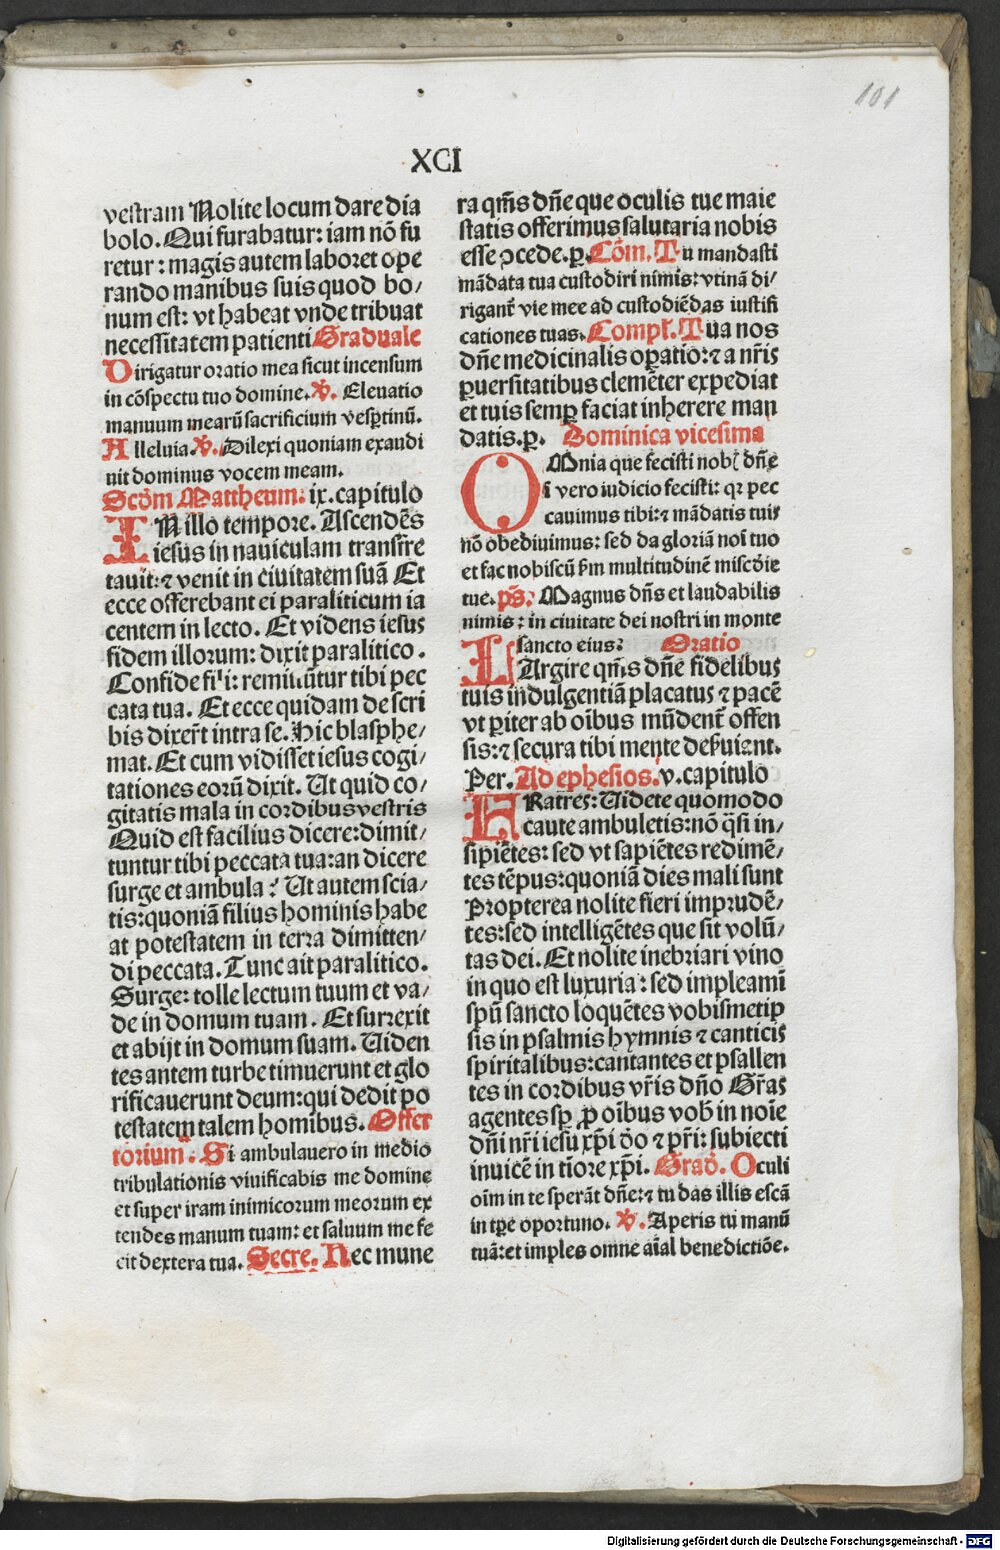 101
XCI
vestram Nolite locum dare dia
bolo. Qui furabatur: iam nõ fu
retur: magis autem laboret ope
rando manibus suis quod bo/
num est: vt habeat vnde tribuat
necessitatem patienti Graduale
Dirigatur oratio mea sicut incensum
in cõspectu tuo domine. ℣. Eleuatio
manuum mearũ sacrificium vesꝑtinũ.
Alleluia ℣. Dilexi quoniam exaudi
uit dominus vocem meam.
Scd̃m Mattheum. ix. capitulo
IN illo tempore. Ascendẽs
iesus in nauiculam transfre
tauit: ⁊ venit in ciuitatem suã Et
ecce offerebant ei paraliticum ia
centem in lecto. Et videns iesus
fidem illorum: dixit paralitico.
Confide fili: remittũtur tibi pec
cata tua. Et ecce quidam de scri
bis dixer̃t intra se. Hic blasphe/
mat. Et cum vidisset iesus cogi/
tationes eorũ dixit. Ut quid co/
gitatis mala in cordibus vestris
Quid est facilius dicere: dimit/
tuntur tibi peccata tua: an dicere
surge et ambula? Ut autem scia/
tis: quoniã filius hominis habe
at potestatem in terra dimitten/
di peccata. Tunc ait paralitico.
Surge: tolle lectum tuum et va/
de in domum tuam. Et surrexit
et abijt in domum suam. Uiden
tes antem turbe timuerunt et glo
rificauerunt deum: qui dedit po
testatem talem homibus. Offer
torium. Si ambulauero in medio
tribulationis viuificabis me domine
et super iram inimicorum meorum ex
tendes manum tuam: et saluum me fe
cit dextera tua. Secre. Nec mune
ra qm̃s dñe que oculis tue maie
statis offerimus salutaria nobis
esse ꝯcede. p. Cõm. Tu mandasti
mãdata tua custodiri nimis: vtinã di/
rigant̃ vie mee ad custodiẽdas iustifi
cationes tuas. Compl̃. Tua nos
dñe medicinalis oꝑatio: ⁊ a nr̃is
ꝑuersitatibus clemẽter expediat
et tuis semꝑ faciat inherere man
datis. p. Dominica vicesima
OMnia que fecisti nob̃ dñe
i vero iudicio fecisti: qꝛ pec
cauimus tibi: ⁊ mãdatis tuis
nõ obediuimus: sed da gloriã noĩ tuo
et fac nobiscũ s̃m multitudinẽ misc̃die
tue. ps̃. Magnus dñs et laudabilis
nimis: in ciuitate dei nostri in monte
sancto eius: Oratio
LArgire qm̃s dñe fidelibus
tuis indulgentiã placatus ⁊ pacẽ
vt ꝑiter ab oĩbus mũdent̃ offen
sis: ⁊ secura tibi mente deẽuiant.
Per. Ad ephesios. v. capitulo
FRatres: Uidete quomodo
caute ambuletis: nõ q̃si in/
sipiẽtes: sed vt sapiẽtes redimẽ/
tes tẽpus: quoniã dies mali sunt
Propterea nolite fieri imprudẽ/
tes: sed intelligẽtes que sit volũ/
tas dei. Et nolite inebriari vino
in quo est luxuria: sed impleamĩ
spũ sancto loquẽtes vobismetip
sis in psalmis hymnis ⁊ canticis
spiritalibus: cantantes et psallen
tes in cordibus vr̃is dño Gr̃as
agentes sp̃ ꝓ oĩbus vob̃ in noĩe
dñi nr̃i iesu xp̃i d̃o ⁊ pr̃i: subiecti
inuicẽ in tĩore xp̃i. Grad̃. Oculi
oĩm in te sperãt dñe: ⁊ tu das illis escã
in tꝑe oportuno. ℣. Aperis tu manũ
tuã: et imples omne aĩal benedictiõe.
Digitalisierung gefördert durch die Deutsche Forschungsgemeinschaft - DFG